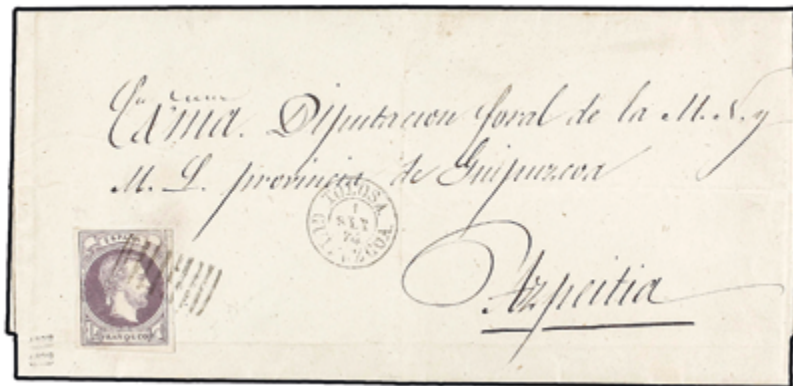 Exma. Diputacion foral de la M. N. y
M. L. provincia de Guipuzcoa
Azpeitia
TOLOSA
1
SET
GUIPUZCOA
ESPAÑA
FRANQUEO